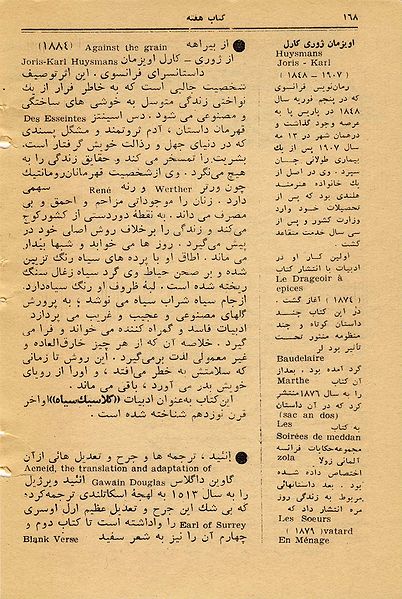 ۱۶۸
کتاب هفته
اویزمان ژوری کارل
Huysmans
Joris - Karl
(۱۹۰۷ - ۱۸۴۸)
رمان‌نویس فرانسوی
که در پنجم فوریه سال
۱۸۴۸ در پاریس پا به
عرصه وجود گذاشت و
درهمان شهر در ۱۳ مه
سال ۱۹۰۷ پس از یك
بیماری طولانی جان
سپرد . وی در اصل از
یك خانواده هنرمند
هلندی بود که پس از
تحصیلات خود وارد
وزارت کشور و پس از
سی سال خدمت متقاعد
گشت .
اولین کار او در
ادبیات با انتشار کتاب
Le Drageoir à
epices
(۱۸۷۴) آغاز گشت .
در این کتاب چند
داستان کوتاه و چند
منظومه منثور تحت
تأثیر بود لر
Baudelaire
گرد آمده بود . بعداز
آن کتاب Marthe
را به سال ۱۸۷۶منتشر
کرد که در آن داستان
(sac an dos)
به کتاب Les
Soirées de meddan
مجموعه‌حکایات فرانسه
آلمانی زولا zola
اختصاص داده شده
بود . بعد داستانهائی
مربوط به زندگی روز
مره انتشار داد که
Les Soeurs
(۱۸۷۹) vatard
En Ménage
● از بیراهه Against the grain (۱۸۸۴)
از ژوری – کارل اویزمان Joris-Karl Huysmans
داستانسرای فرانسوی . این اثرتوصیف
شخصیت جالبی است که به خاطر فرار از یك
نواختی زندگی متوسل به خوشی های ساختگی
و مصنوعی می شود . دس اسینتز Des Esseintes
قهرمان داستان ، آدم ثروتمند و مشکل پسندی
که در دنیای جهل و رذالت خویش گرفتار است.
بشریت را تمسخر می کند و حقایق زندگی را به
هیچ‌نمی‌گرد . وی ازشخصیت قهرمانان‌رومانتیك
چون ورتر Werther و رنه René سهمی
دارد . زنان را موجوداتی مزاحم و احمق و بی
مصرف می داند . به نقطهٔ دوردستی از کشورکوچ
می‌کند و زندگی را برخلاف روش اصلی خود در
پیش می‌گیرد . روز ها می خواند و شبها بیدار
می ماند . اطاق او با پرده های سیاه رنگ تزیین
شده و بر صحن حیاط وی گرد سیاه زغال سنگ
ریخته شده است . لبهٔ ظروف او رنگ سیاه‌دارد.
ازجام سیاه شراب سیاه می نوشد ؛ به پرورش
گلهای مصنوعی و عجیب و غریب می پردازد
ادبیات فاسد و گمراه کننده می خواند و فرا می
گیرد . خلاصه آن که از هر چیز خارق‌العاده و
غیر معمولی لذت برمی‌گیرد . این روش تا زمانی
که سلامتش به خطر می‌افتد ، و اورا از رویای
خویش بدر می آورد ، باقی می ماند .
این‌کتاب به‌عنوان ادبیات ((کلاسیك‌سیاه)) اواخر
قرن نوزدهم شناخته شده است .
● انئید ، ترجمه ها و جرح و تعدیل هائی ازآن
Aeneid, the translation and adaptation of
گاوین داگلاس Gawain Douglas انئید ویرژیل
را به سال ۱۵۱۳ به لهجهٔ اسکاتلندی ترجمه‌کرده؛
که بی شك این جرح و تعدیل عظیم ارل اوسری
Earl of Surrey را واداشته است تا کتاب دوم و
چهارم آن را نیز به شعر سفید Blank Verse